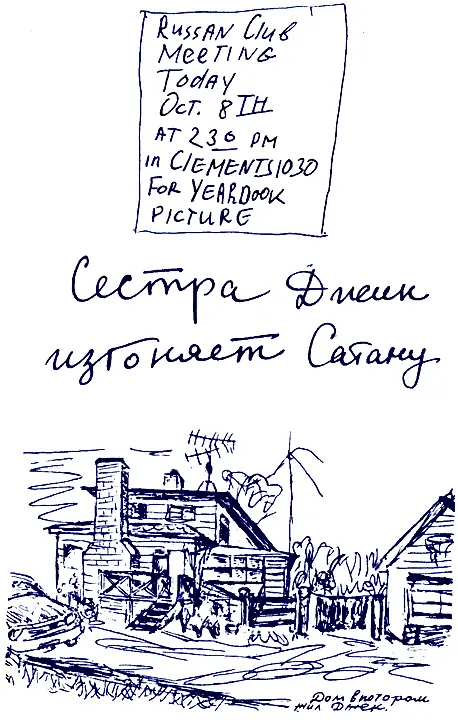 RUSSAN Club
MEETING
TODAY
OCT. 8TH
AT 230 PM
in CLEMENTS 1030
FOR YEARBOOK
PICTURE
Сестра Джейн
изгоняет Сатану
Дом в котором
жил Джек.